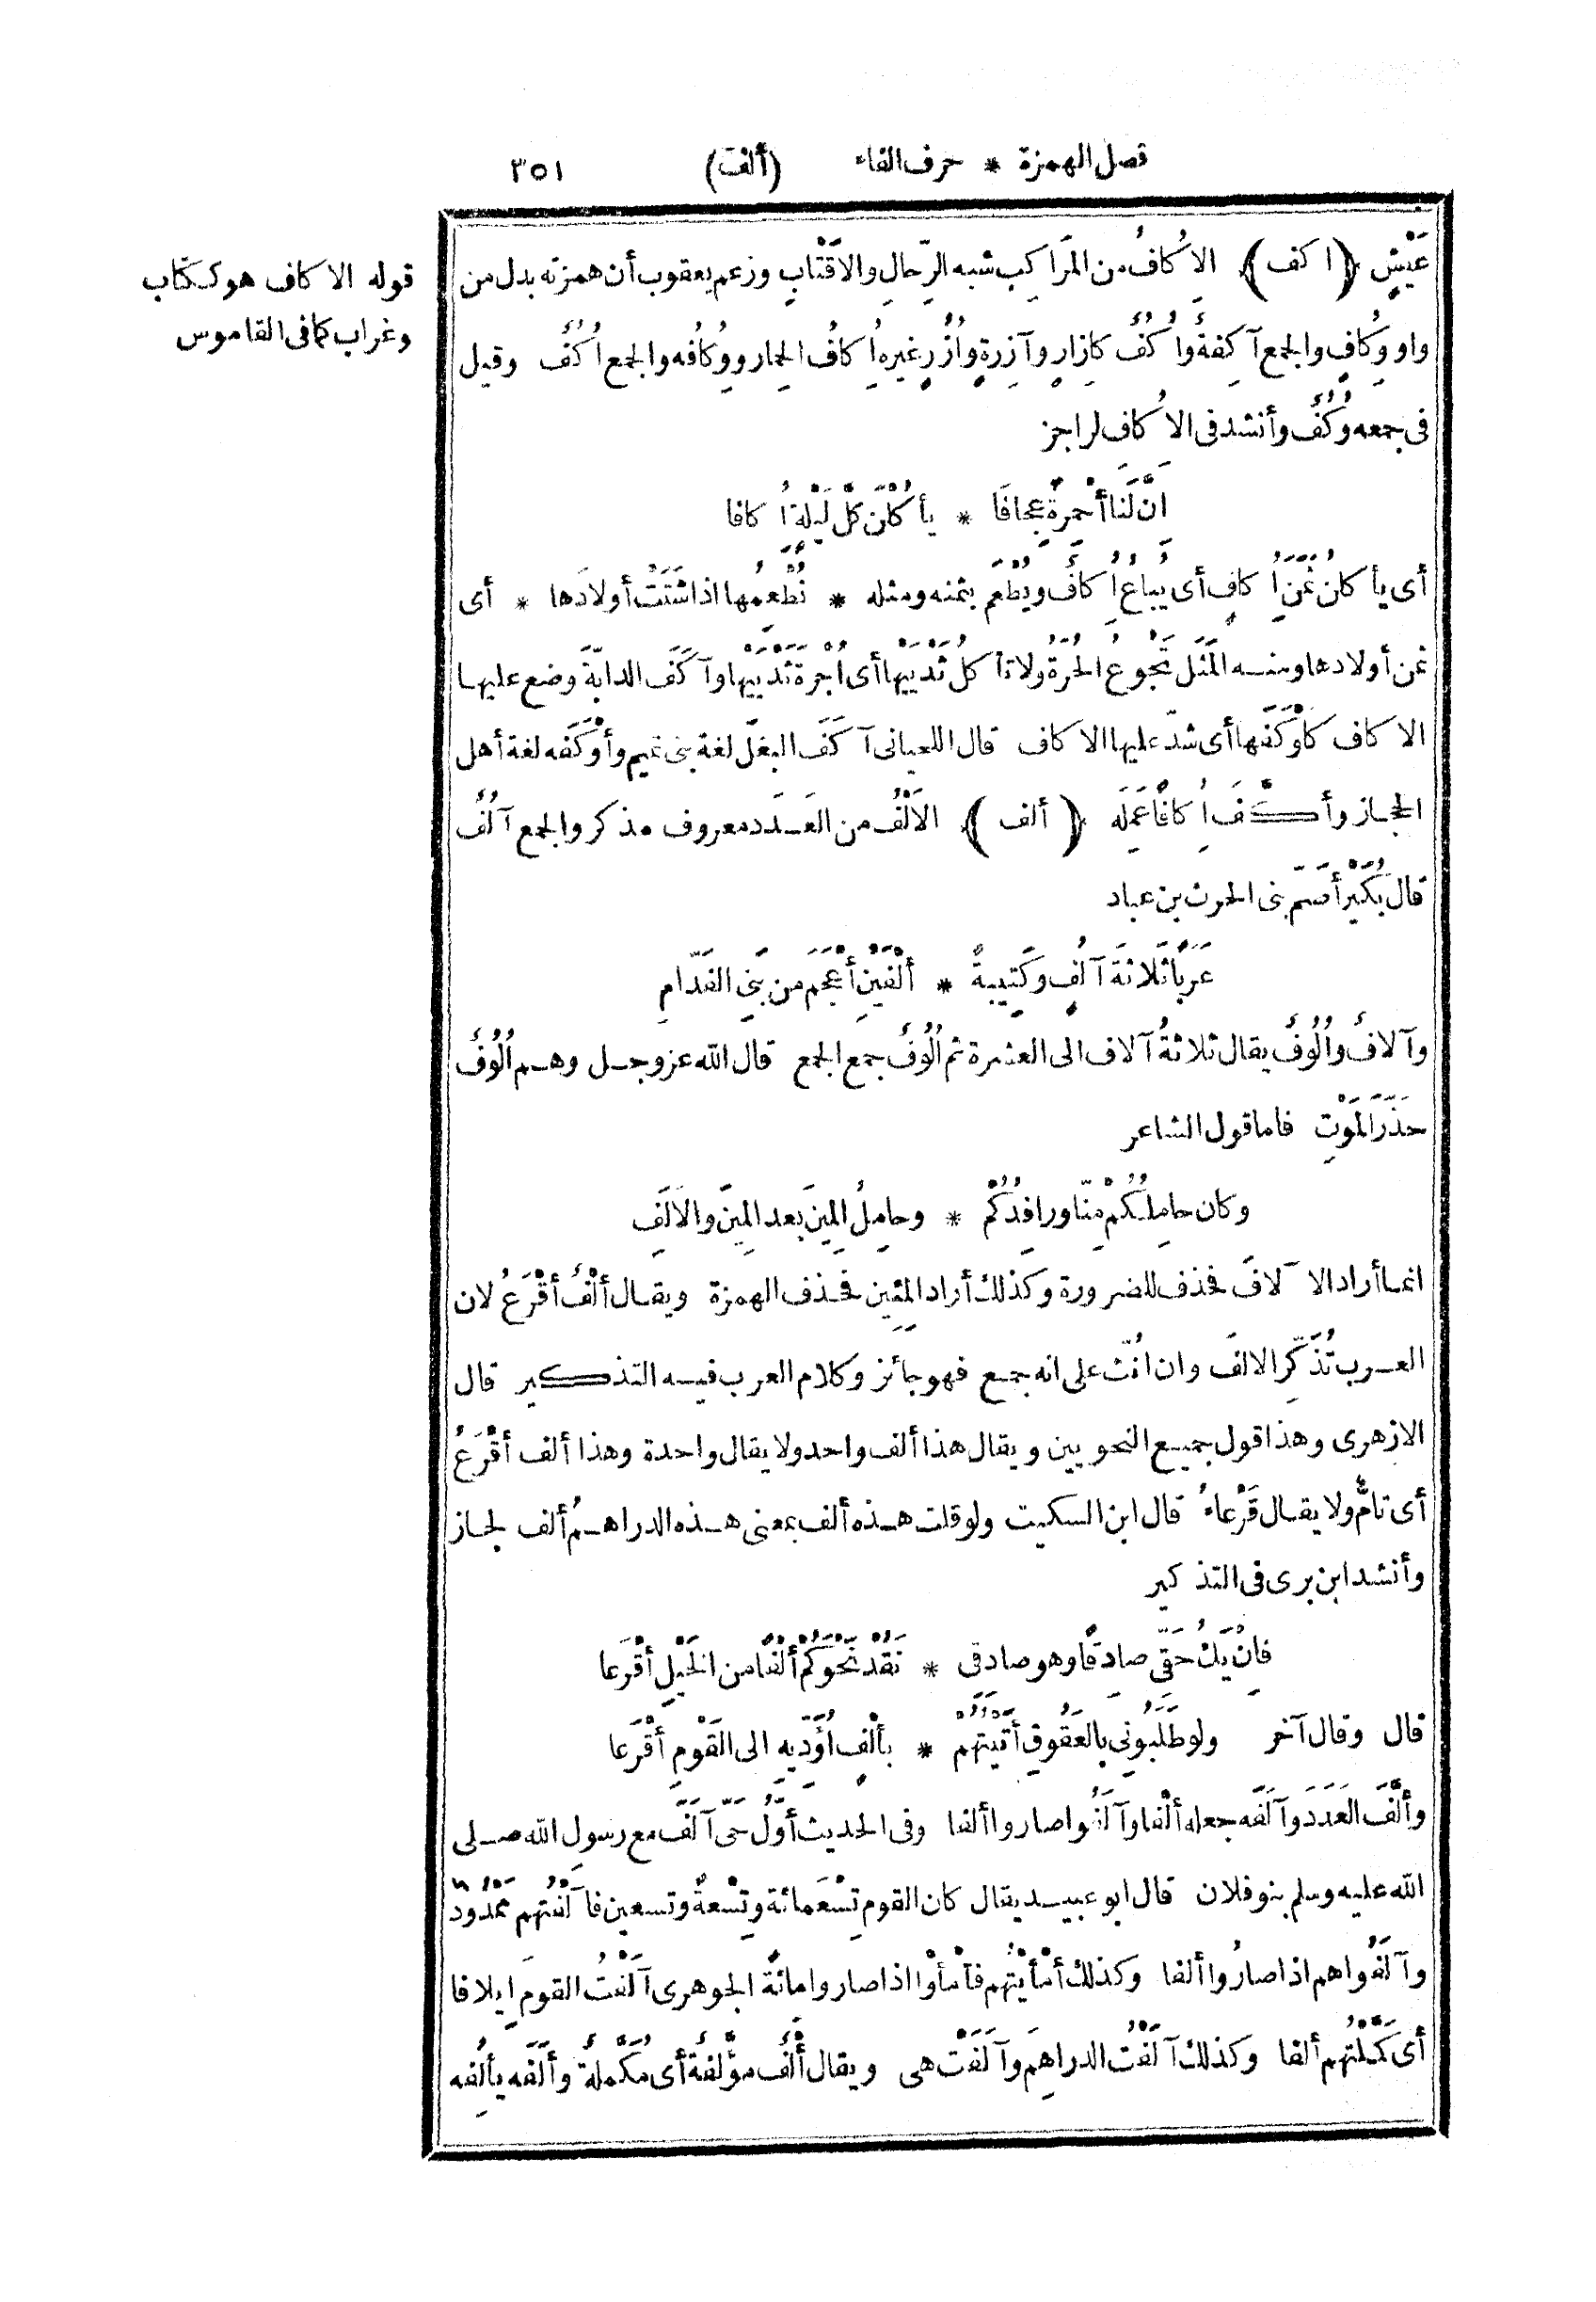 فصل الهمزة * حرف الفاء (ألف) ٣٥١
عَيْشٍ (اكف) الاُكافُ من المَراكِب شبه الرِّحالِ والاَقْتابِ وزعم يعقوب أن همزته بدل من
واو وِكافٍ والجمع آكِفةٌ واُكُفٌ كازارٍ وآزِرةٍ واُزُرٍ غيره اُِكافُ الحِمار ووُِكافُه والجمع اُكُفٌ وقيل
فى جمعه وُكُفٌ وأنشد فى الاُكاف لراجز
اِنَّ لَنا أَحْمِرةً عِجافَا * يأكُلْنَ كلَّ لَيْلةٍ اُِكافا
أى يأكلن ثَمَنَ اُِكافٍ أى يُباعُ اُِكافٌ ويُطْعَم بثمنه ومثله * نُطْعِمُها اذا اشْتَتْ أولادَها * أى
ثمن أولادها ومنه المَثَل تَجُوعُ الحُرّةُ ولا تأكلُ ثَدْيَيْها أى اُجْرةَ ثَدْيَيْها وآكَفَ الدابّةَ وضع عليها
الاكاف كاَوْكَفَها أى شدّ عليها الاكاف قال اللحيانى آكَفَ البغلَ لغة بنى تميم وأَوْكَفَه لغة أهل
الحجاز وأكَّفَ اُِكافًا عَمِلَه (ألف) الاَلْفُ من العَدَد معروف مذكر والجمع آلُفٌ
قال بُكَيْر أَصَمّ بنى الحرث بن عباد
عَرَبًا ثَلاثةَ آلُفٍ وكَتِيبةً * أَلْفَيْنِ أَعْجَمَ من بَنِى الفَدّامِ
وآلافٌ واُلُوفٌ يقال ثلاثةُ آلاف الى العشرة ثم اُلُوفٌ جمع الجمع قال الله عز وجل وهم اُلُوفٌ
حَذَرَ المَوْتِ فاما قول الشاعر
وكان حامِلُكُمْ مِنّا ورافِدُكُمْ * وحامِلُ المِينَ بعد المِينَ والاَلَفِ
انما أراد الآلافَ فحذف للضرورة وكذلك أراد المِئِين فحذف الهمزة ويقال أَلْفٌ أَقْرَعُ لان
العرب تُذَكِّر الالفَ وان اُنّث على انه جمع فهو جائز وكلام العرب فيه التذكير قال
الازهرى وهذا قول جميع النحويين ويقال هذا ألف واحد ولا يقال واحدة وهذا ألف أَقْرَعُ
أى تامٌّ ولا يقال قَرْعاءُ قال ابن السكيت ولو قلت هذه ألف بمعنى هذه الدراهمُ ألف لجاز
وأنشد ابن برى فى التذكير
فاِنْ يَكُ حَقِّى صادِقًا وهو صادقى * نَقُدْ نَحْوَكُمْ أَلْفًا من الخَيْلِ أَقْرَعا
قال وقال آخر ولو طَلَبُونِى بِالعَقُوقِ أَتَيْتُهُمْ * بأَلْفٍ اُؤَدِّيهِ الى القَوْمِ أَقْرَعا
وأَلَّفَ العَدَدَ وآلَفَه جعله أَلْفا وآلَفُوا صاروا ألفا وفى الحديث أوّلُ حَىّ آلَفَ مع رسولِ الله صلى
الله عليه وسلم بنو فلان قال أبو عبيد يقال كان القوم تِسْعَمائة وتِسْعةً وتسعين فآلَفْتُهم مَمْدُودٌ
وآلَفُوا هم اذا صارُوا ألفا وكذلك أَمْأَيْتُهم فأَمْأَوْا اذا صاروا مائةً الجوهرى آلَفْتُ القومَ اِيلافا
أى كَمَّلْتُهم ألفا وكذلك آلَفْتُ الدراهِمَ وآلَفَتْ هى ويقال أَلْفٌ مؤَلَّفةٌ أى مُكَمَّلةٌ وأَلَفَه يأْلِفُه
قوله الاكاف هو ككتاب
وغراب كما فى القاموس